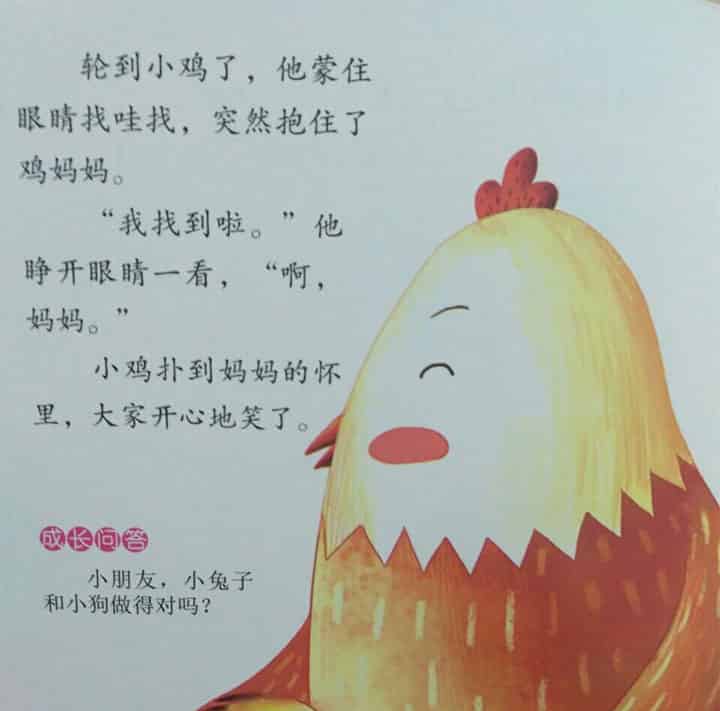 轮到小鸡了，他蒙住
眼睛找哇找，突然抱住了
鸡妈妈。
“我找到啦。”他
睁开眼睛一看，“啊，
妈妈。”
小鸡扑到妈妈的怀
里，大家开心地笑了。
成长问答
小朋友，小兔子
和小狗做得对吗？